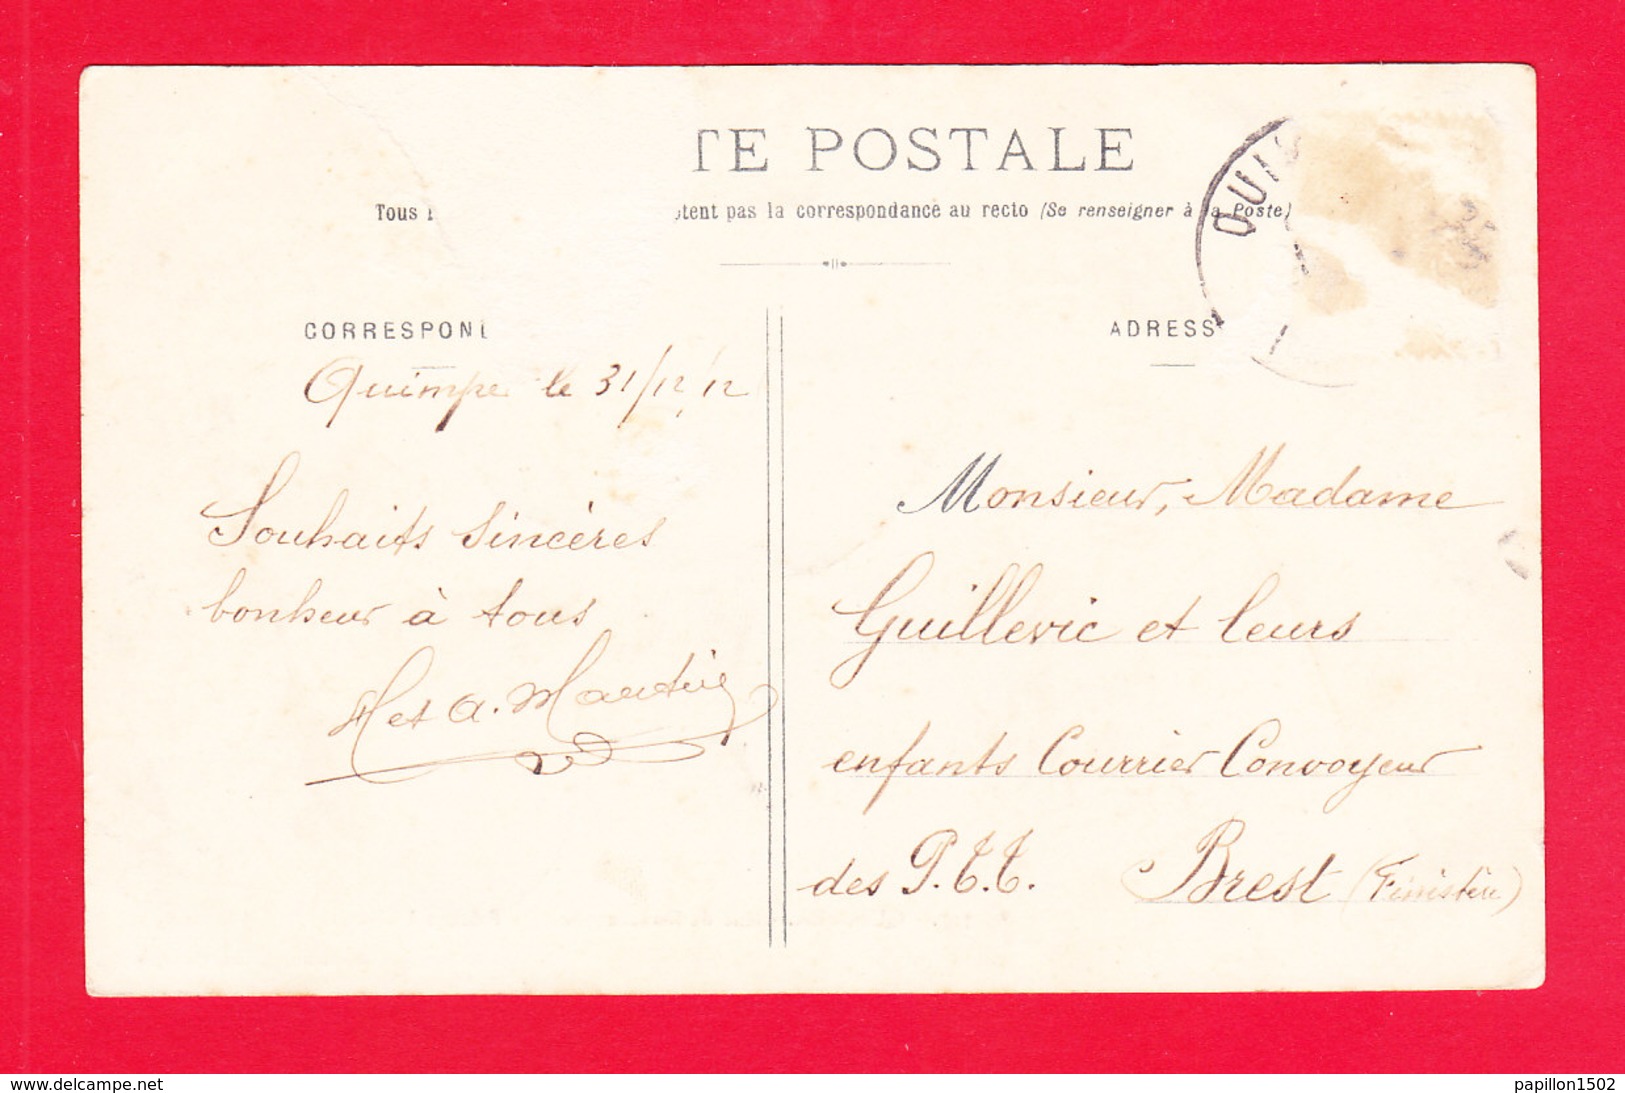 TE POSTALE
Tous
tent pas la correspondance au recto (Se renseigner à la Poste)
QUIM
CORRESPON
ADRESS
Quimper le 31/12/12
Souhaits sincères
bonheur à tous
H et A. Martin
Monsieur, Madame
Guillevic et leurs
enfants Courrier Convoyeur
des P.T.T. Brest (Finistère)
www.delcampe.net
papillon1502